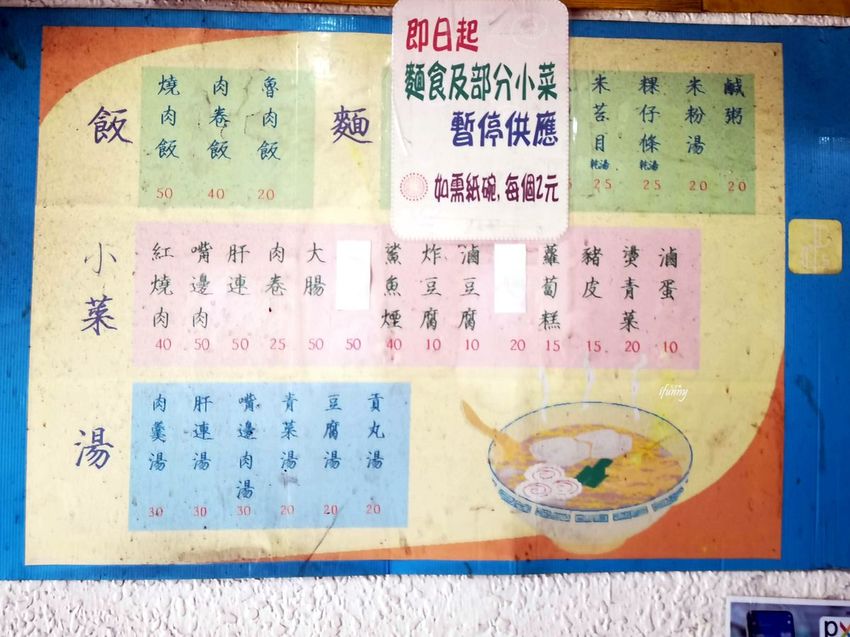 即日起
麵食及部分小菜
暫停供應
如需紙碗,每個2元
飯
燒肉飯 50
肉卷飯 40
魯肉飯 20
麵
米苔目 乾湯 25
粿仔條 乾湯 25
米粉湯 20
鹹粥 20
小菜
紅燒肉 40
嘴邊肉 50
肝連 50
肉卷 25
大腸 50
50
鯊魚煙 40
炸豆腐 10
滷豆腐 10
20
蘿蔔糕 15
豬皮 15
燙青菜 20
滷蛋 10
湯
肉羹湯 30
肝連湯 30
嘴邊肉湯 30
青菜湯 20
豆腐湯 20
貢丸湯 20
ifunny